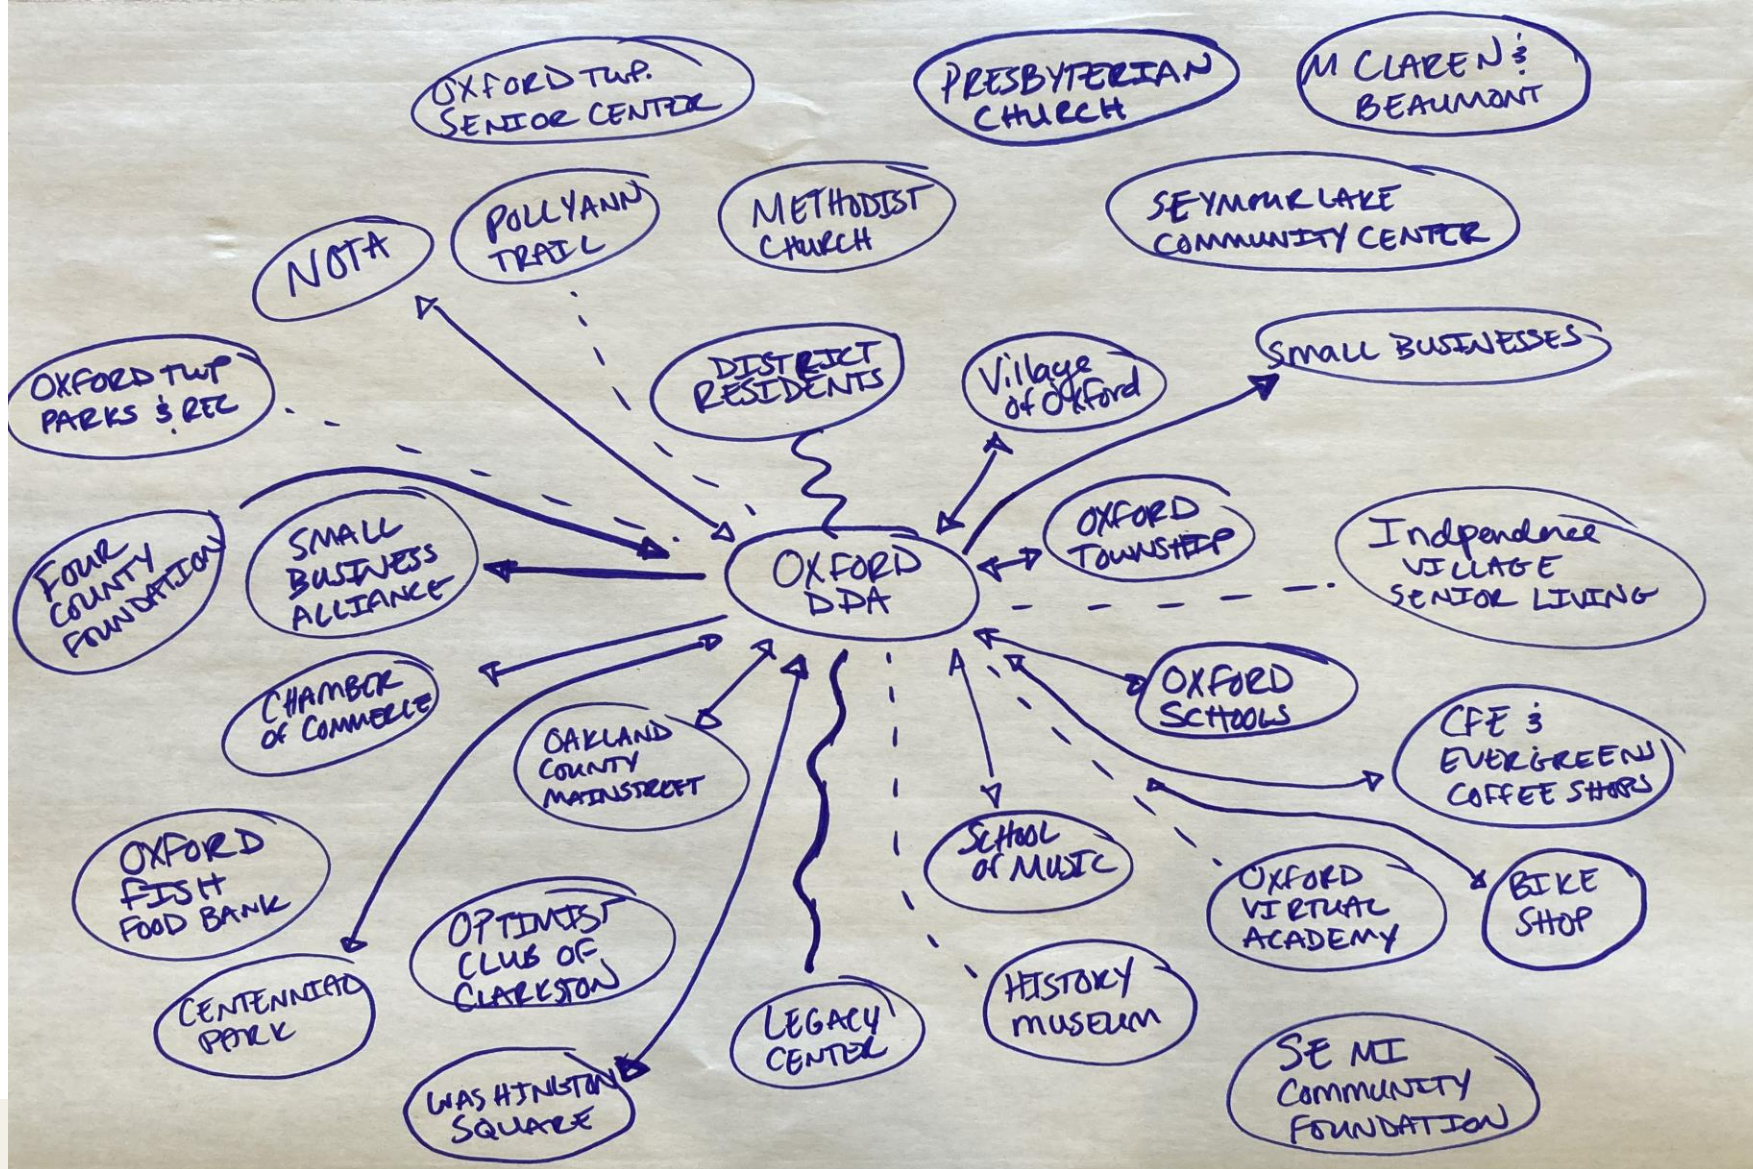 OXFORD TWP.
SENIOR CENTER
PRESBYTERIAN
CHURCH
MCLAREN &
BEAUMONT
NOTA
POLLYANN
TRAIL
METHODIST
CHURCH
SEYMOUR LAKE
COMMUNITY CENTER
OXFORD TWP
PARKS & REC
DISTRICT
RESIDENTS
Village
of Oxford
SMALL BUSINESSES
FOUR
COUNTY
FOUNDATION
SMALL
BUSINESS
ALLIANCE
OXFORD
DDA
OXFORD
TOWNSHIP
Indpendence
VILLAGE
SENIOR LIVING
CHAMBER
OF COMMERCE
OAKLAND
COUNTY
MAINSTREET
OXFORD
SCHOOLS
CFE &
EVERGREENS
COFFEE SHOPS
OXFORD
FISH
FOOD BANK
OPTIMIST
CLUB OF
CLARKSTON
SCHOOL
OF MUSIC
OXFORD
VIRTUAL
ACADEMY
BIKE
SHOP
CENTENNIAL
PARK
WASHINGTON
SQUARE
LEGACY
CENTER
HISTORY
MUSEUM
SE MI
COMMUNITY
FOUNDATION